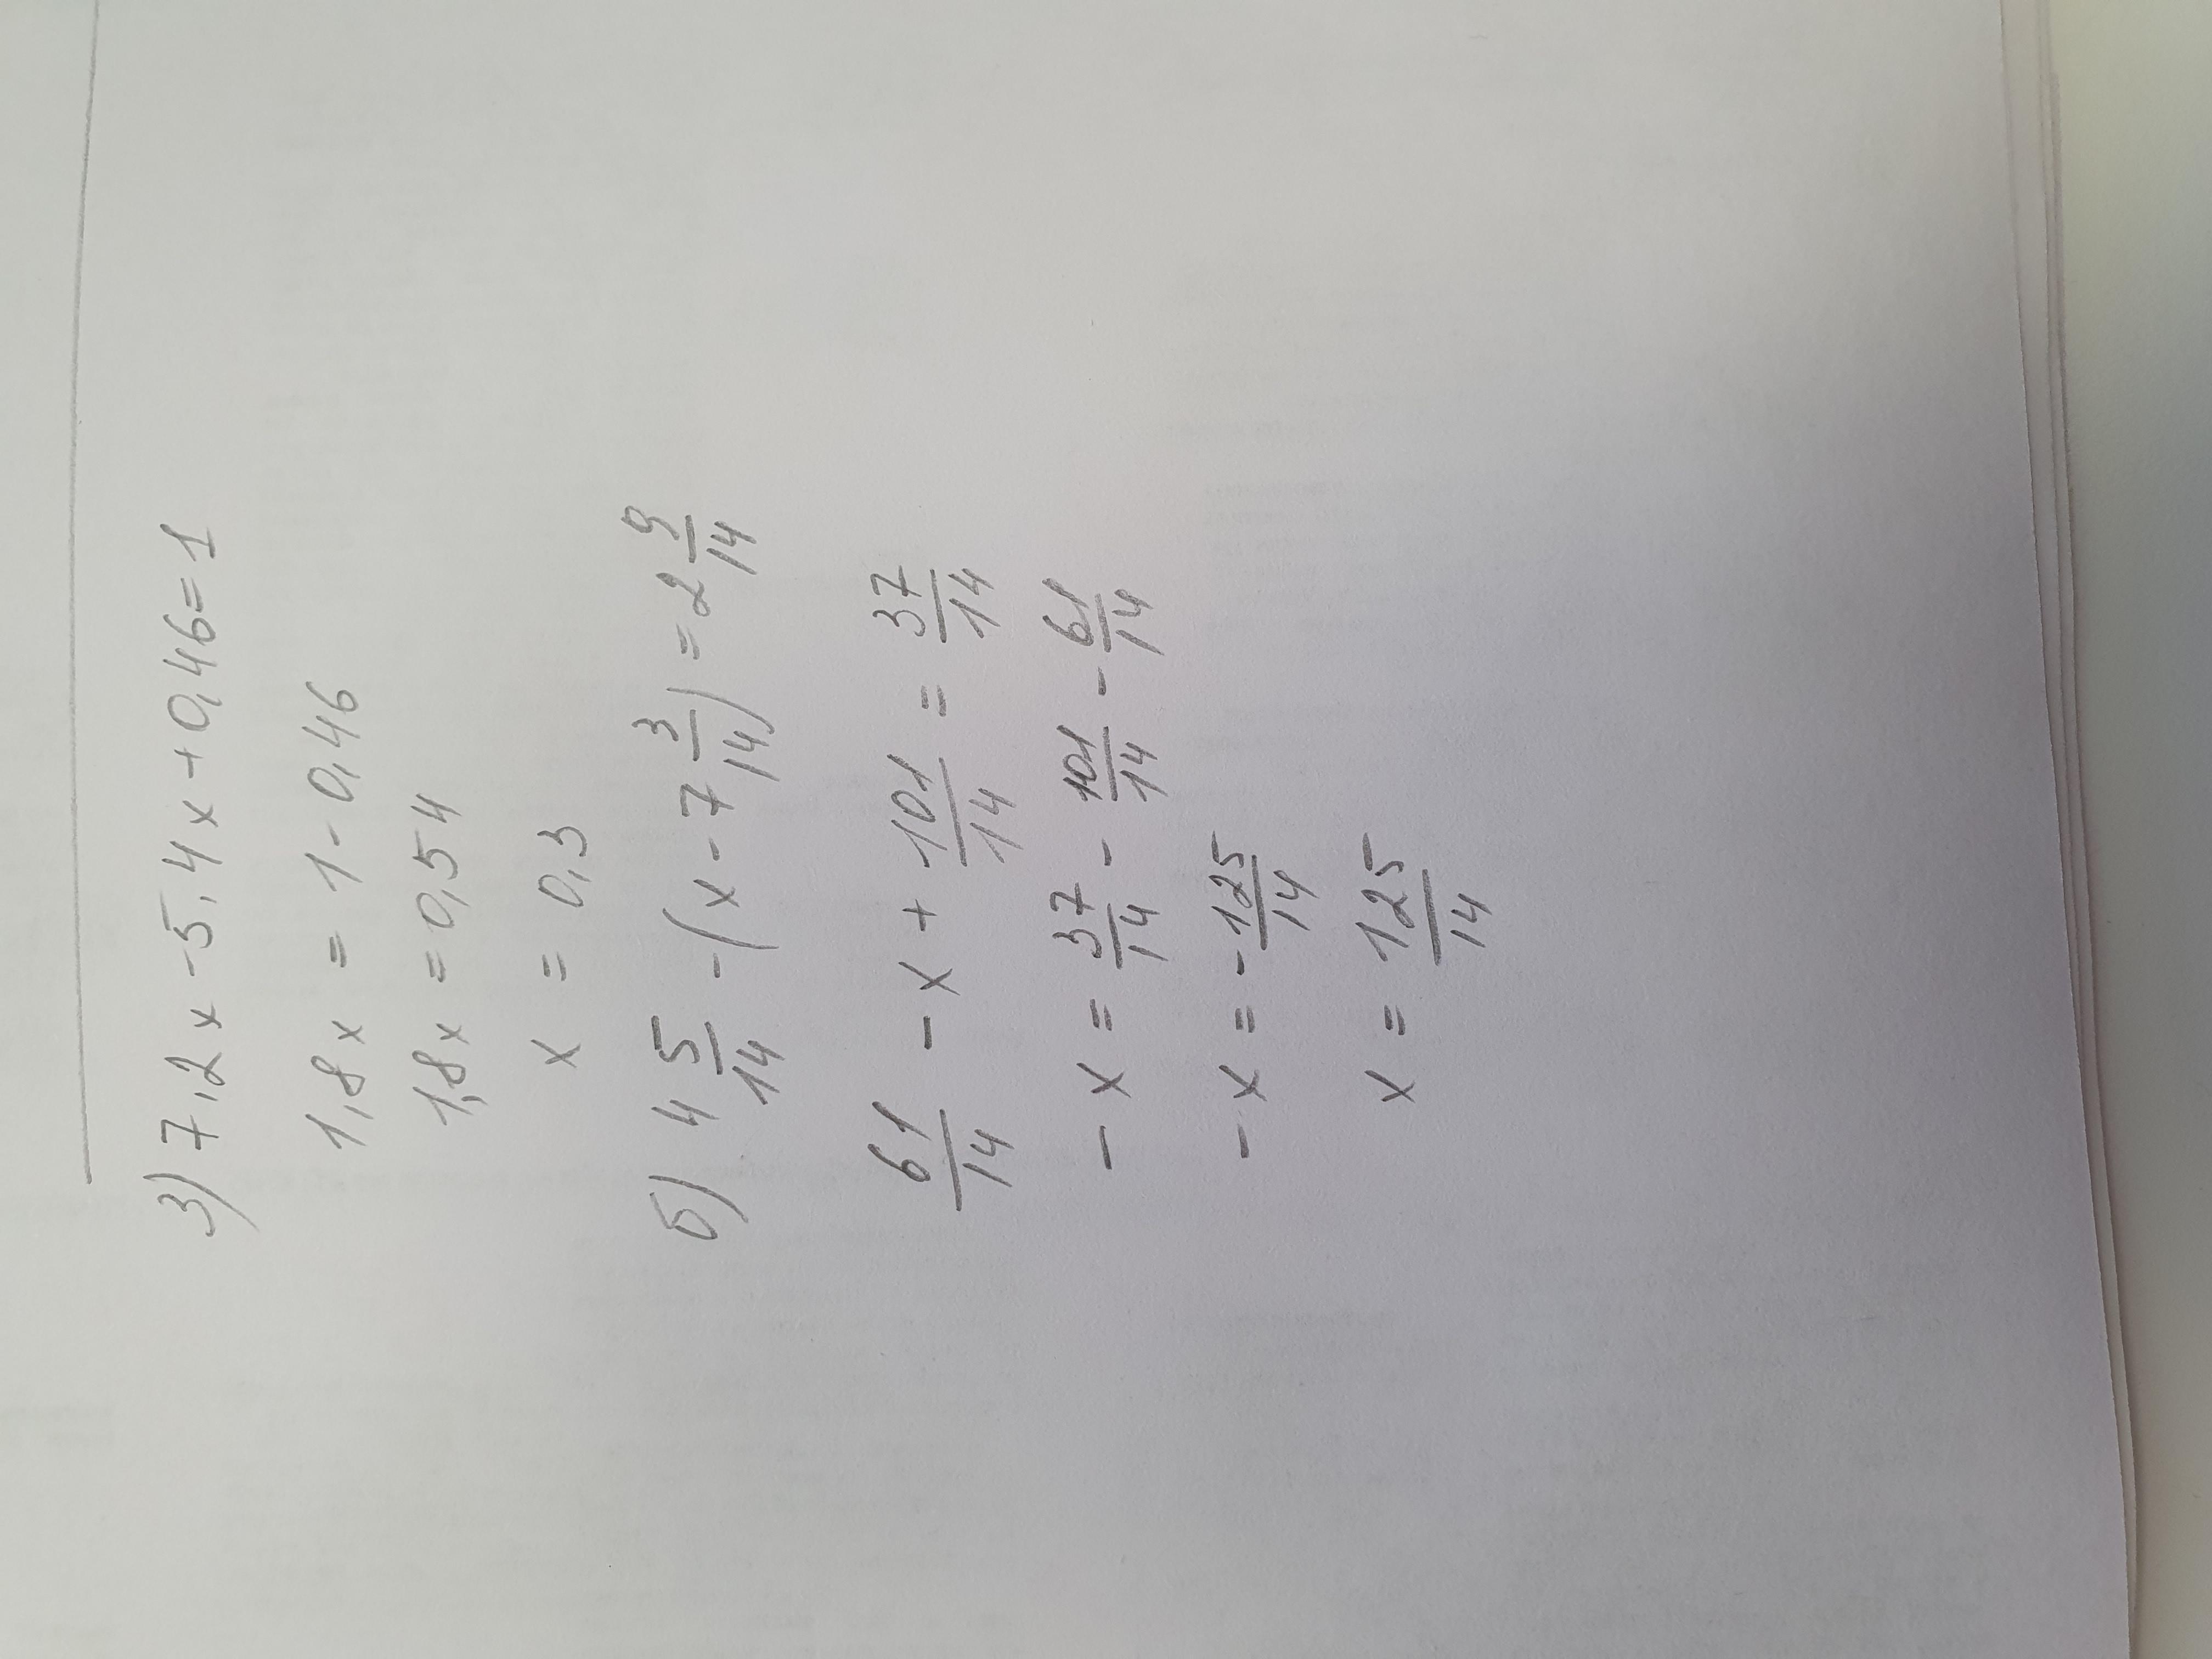 3) 7,2x - 5,4x + 0,46 = 1
1,8x = 1 - 0,46
1,8x = 0,54
x = 0,3
б) 4 5/14 - (x - 7 3/14) = 2 9/14
61/14 - x + 101/14 = 37/14
- x = 37/14 - 101/14 - 61/14
- x = - 125/14
x = 125/14